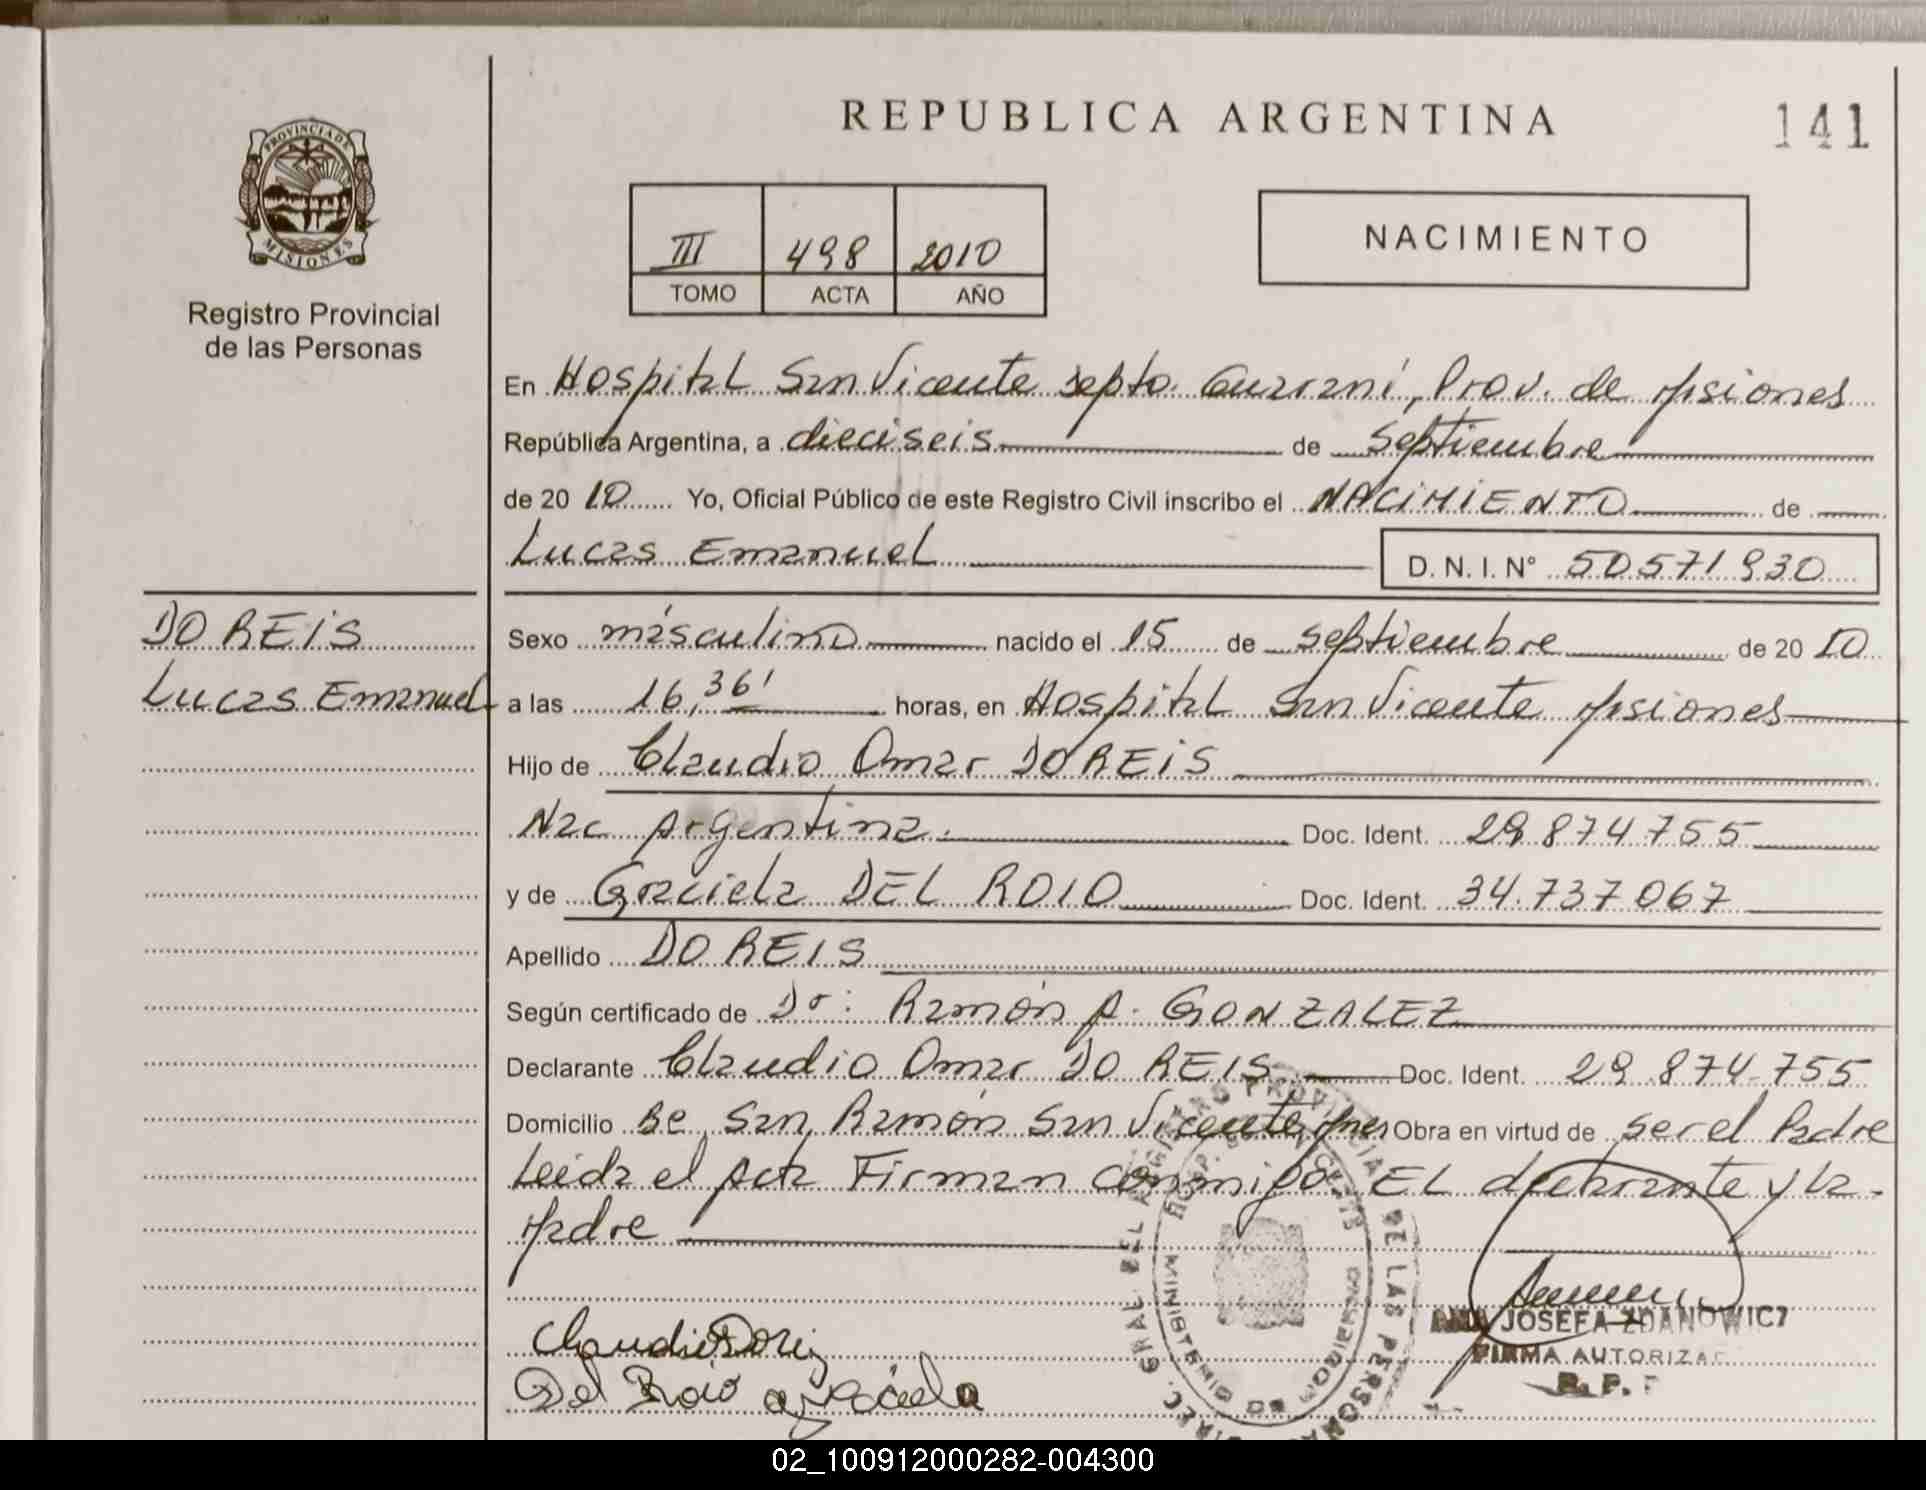 REPUBLICA ARGENTINA
141
PROVINCIA DE
MISIONES
Registro Provincial
de las Personas
III 498 2010
TOMO ACTA AÑO
NACIMIENTO
En Hospital San Vicente Depto. Guaraní, Prov. de Misiones
República Argentina, a dieciseis de Septiembre
de 2010 Yo, Oficial Público de este Registro Civil inscribo el NACIMIENTO de
Lucas Emanuel D. N. I. N° 50571930
DO REIS
Lucas Emanuel
Sexo másculino nacido el 15 de septiembre de 2010
a las 16,36' horas, en Hospital San Vicente Misiones
Hijo de Claudio Omar DO REIS
Nac Argentina. Doc. Ident. 29.874.755
y de Graciela DEL ROIO Doc. Ident. 34.737067
Apellido DO REIS
Según certificado de Dr: Ramón A. GONZALEZ
Declarante Claudio Omar DO REIS Doc. Ident. 29.874-755
Domicilio Bº San Ramón San Vicente, Mnes Obra en virtud de ser el Padre
Leida el Acta Firman conmigo EL declarante y la
Madre
Del Roio Graciela
ANA JOSEFA ZDANOWICZ
FIRMA AUTORIZAD
R. P. P
02_100912000282-004300